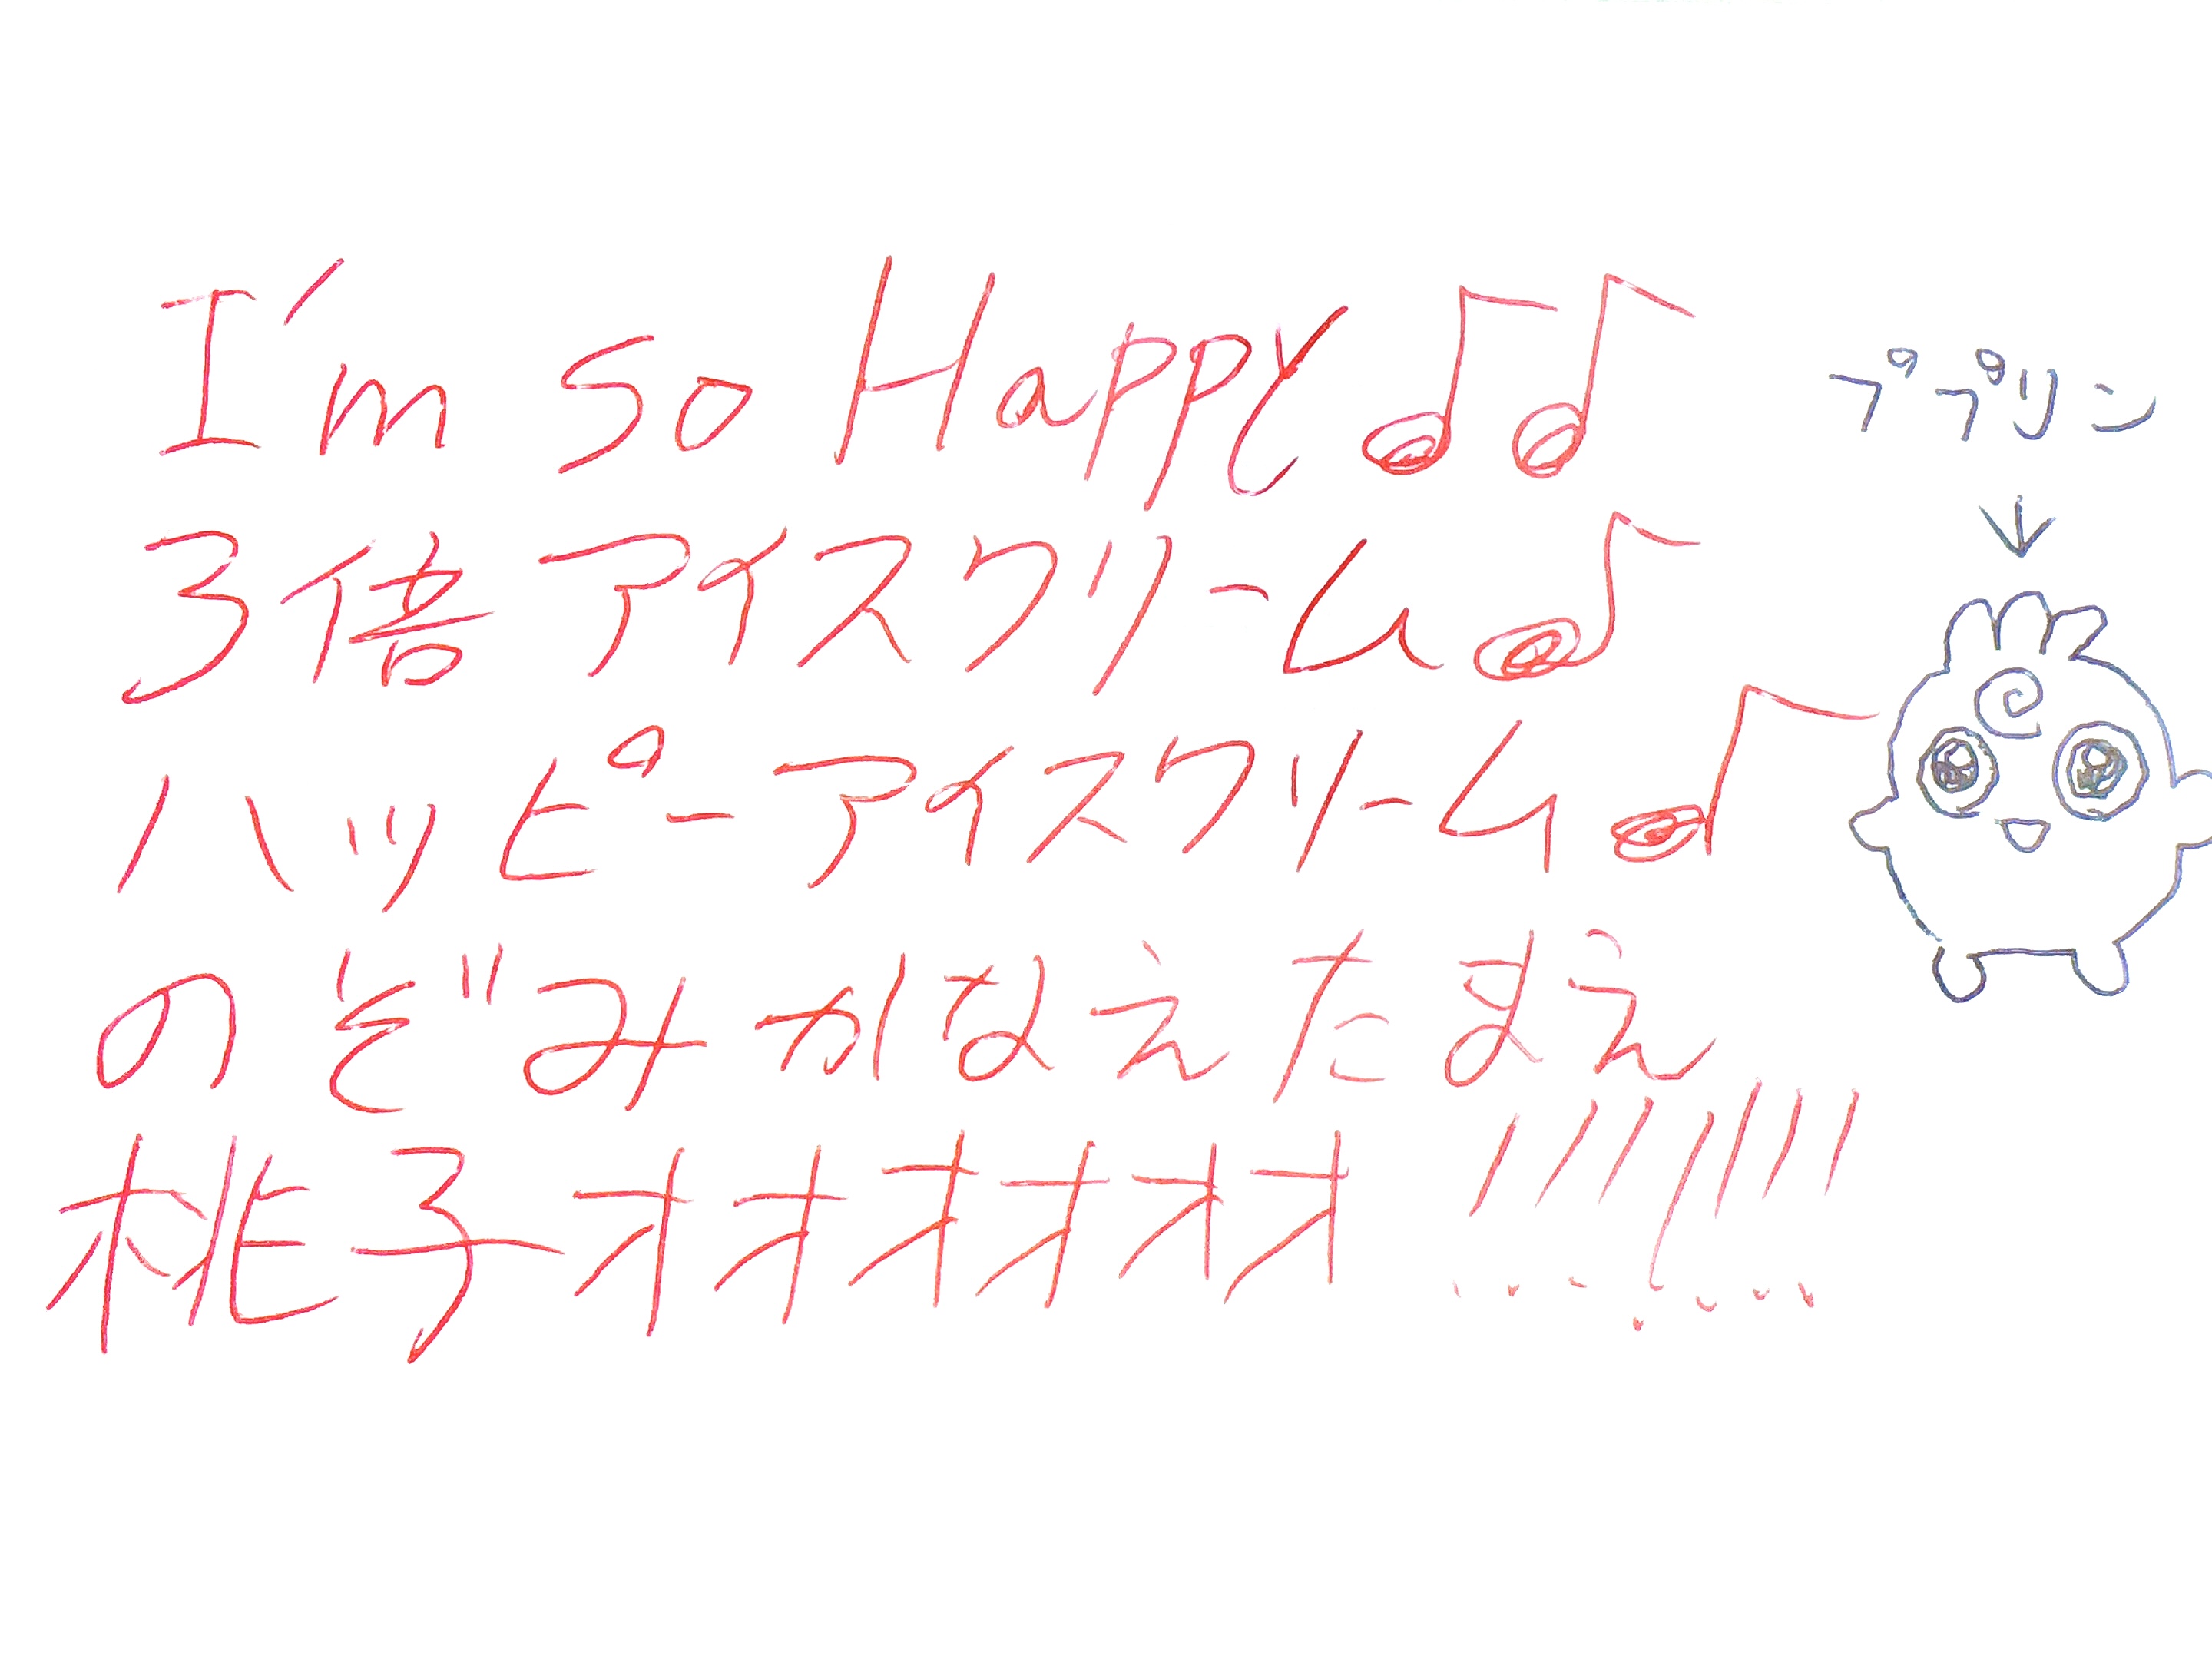 I'm so Happy♪♪
3倍アイスクリーム♪
ハッピーアイスクリーム♪
のぞみかなえたまえ
桃子オオオオオオ!!!!!!!
ププリン
↓